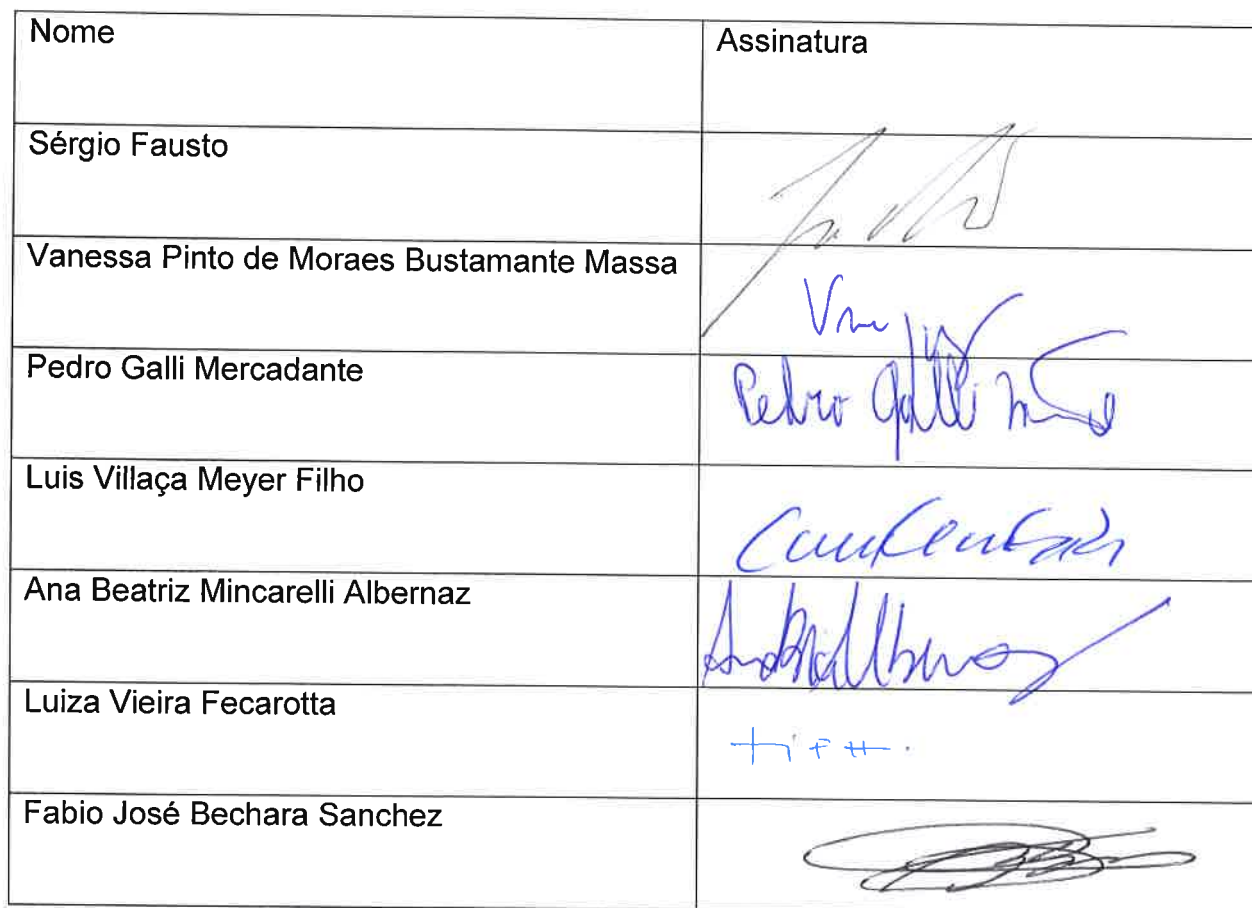 Nome
Assinatura
Sérgio Fausto
Vanessa Pinto de Moraes Bustamante Massa
Pedro Galli Mercadante
Pedro Galli
Luis Villaça Meyer Filho
Ana Beatriz Mincarelli Albernaz
Luiza Vieira Fecarotta
Fabio José Bechara Sanchez